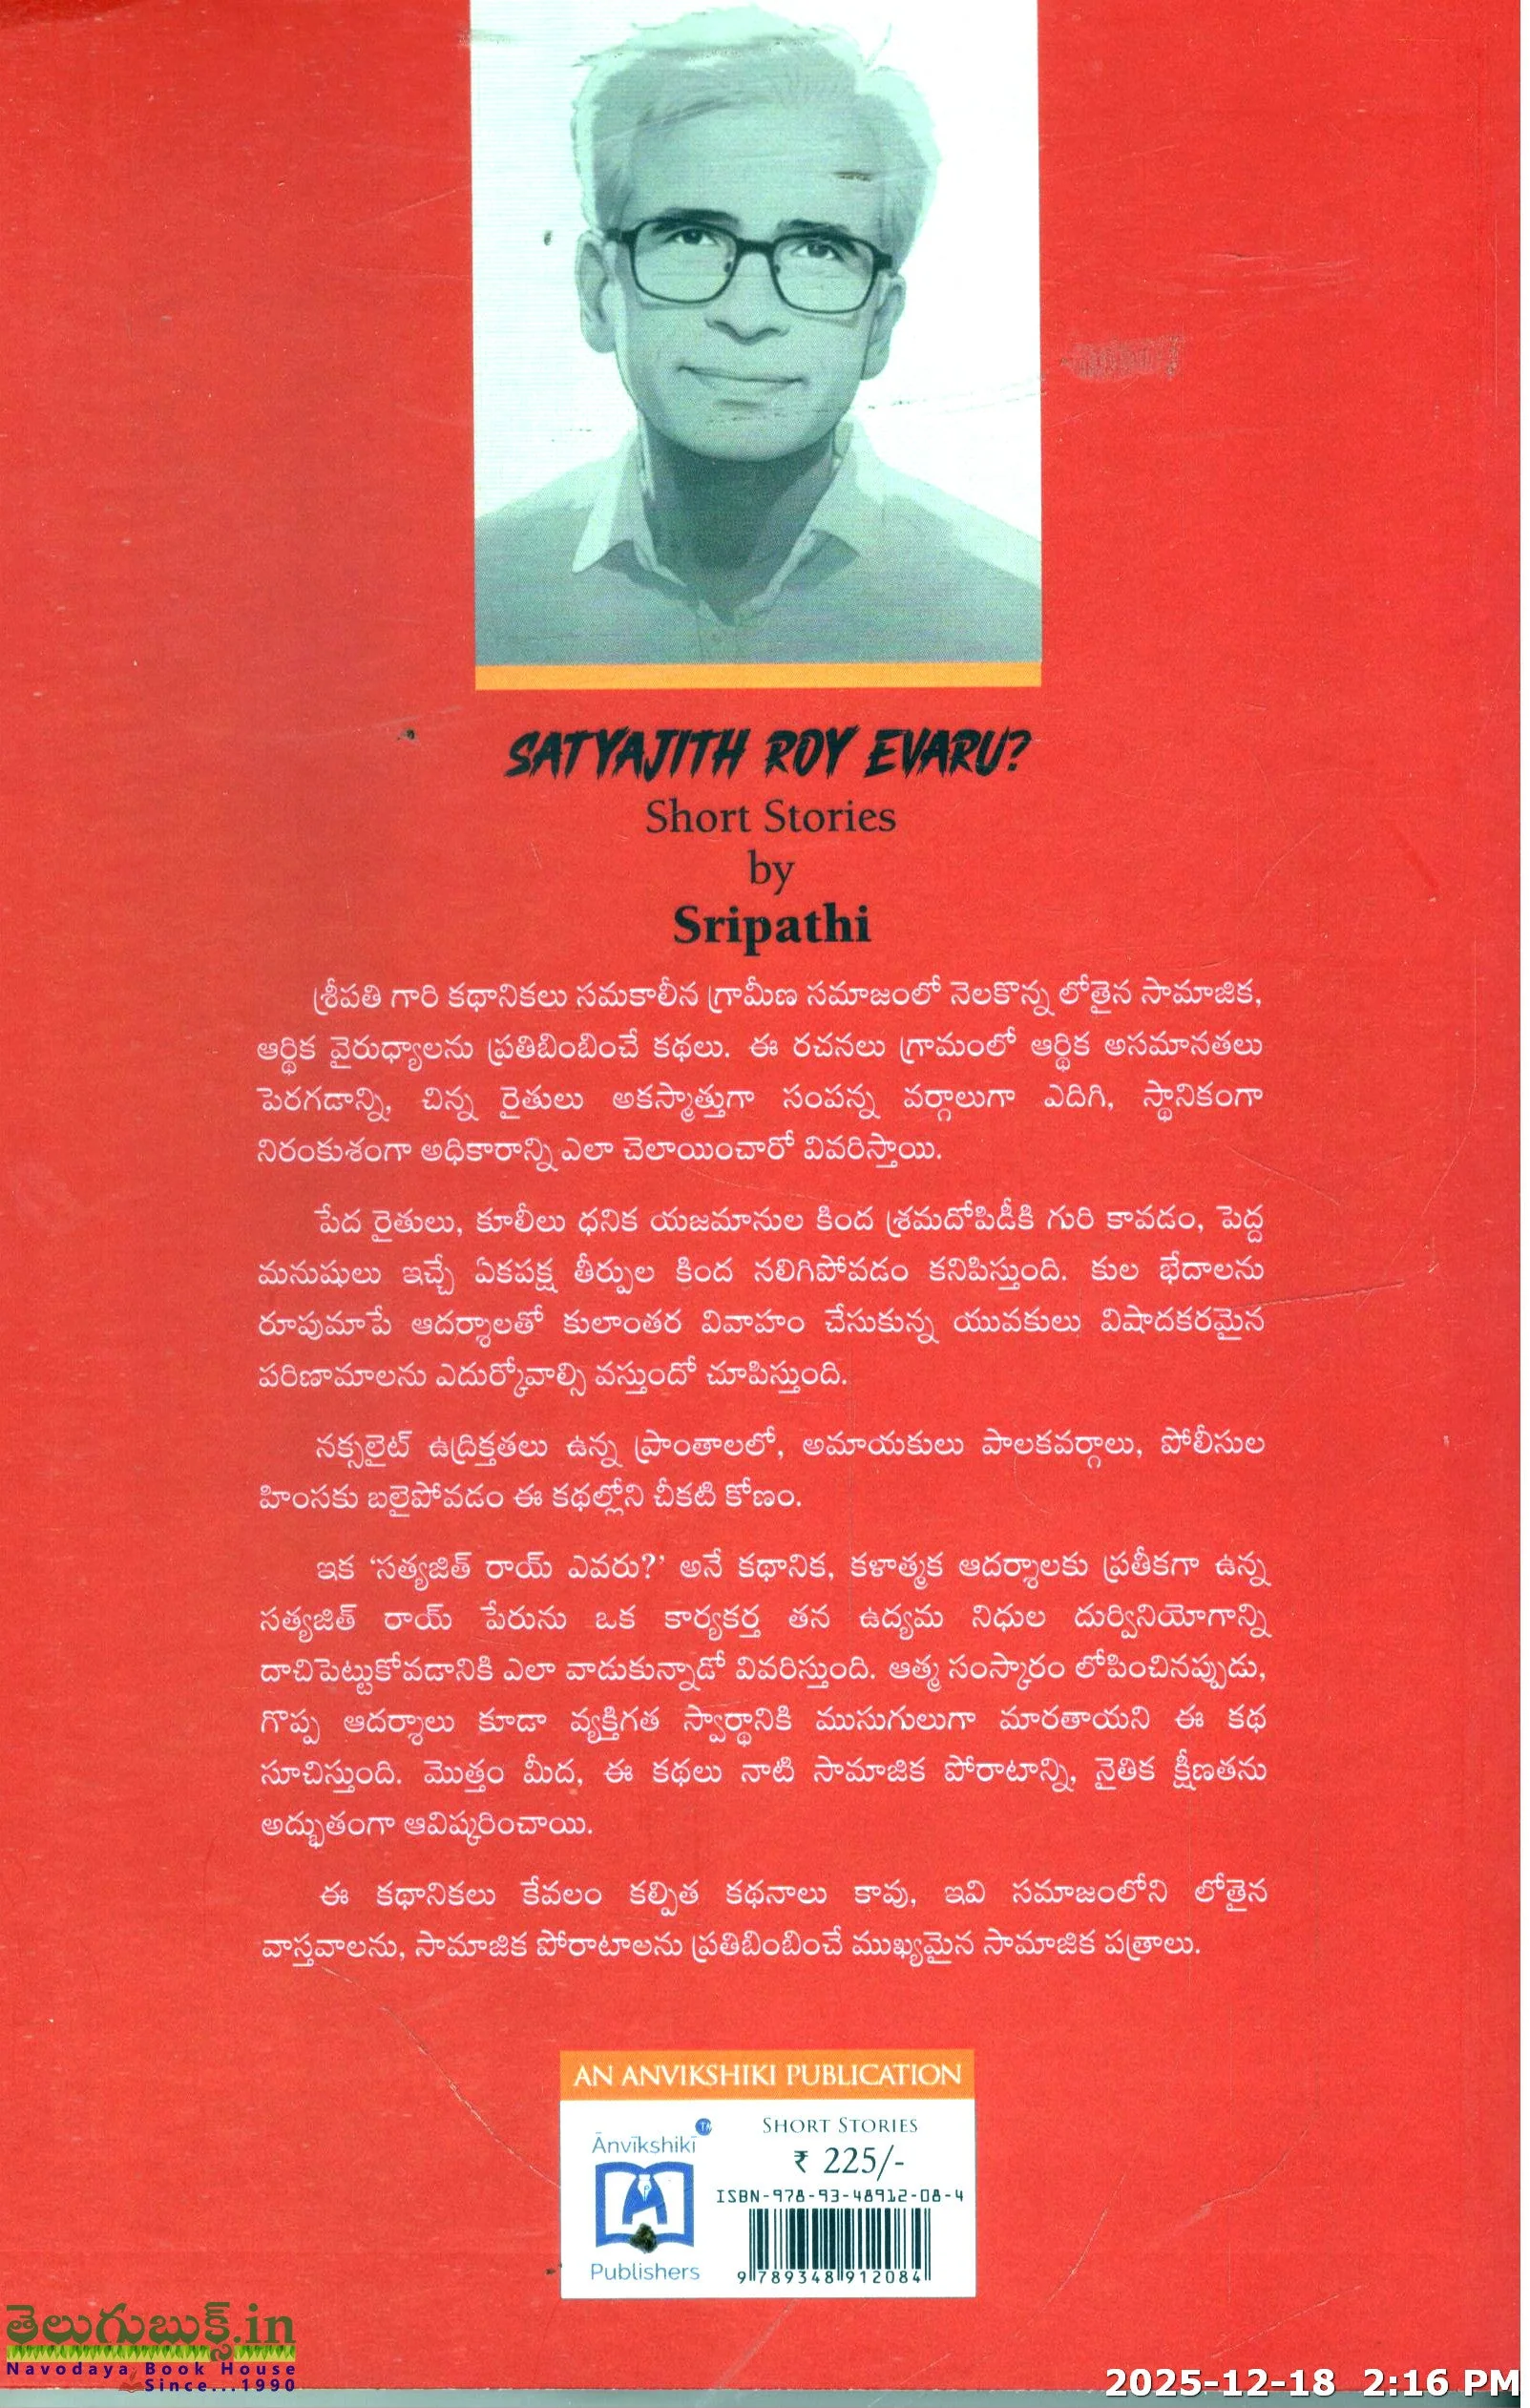 SATYAJITH ROY EVARU?
Short Stories
by
Sripathi
శ్రీపతి గారి కథానికలు సమకాలీన గ్రామీణ సమాజంలో నెలకొన్న లోతైన సామాజిక,
ఆర్థిక వైరుధ్యాలను ప్రతిబింబించే కథలు. ఈ రచనలు గ్రామంలో ఆర్థిక అసమానతలు
పెరగడాన్ని, చిన్న రైతులు అకస్మాత్తుగా సంపన్న వర్గాలుగా ఎదిగి, స్థానికంగా
నిరంకుశంగా అధికారాన్ని ఎలా చెలాయించారో వివరిస్తాయి.
పేద రైతులు, కూలీలు ధనిక యజమానుల కింద శ్రమదోపిడీకి గురి కావడం, పెద్ద
మనుషులు ఇచ్చే ఏకపక్ష తీర్పుల కింద నలిగిపోవడం కనిపిస్తుంది. కుల భేదాలను
రూపుమాపే ఆదర్శాలతో కులాంతర వివాహం చేసుకున్న యువకులు విషాదకరమైన
పరిణామాలను ఎదుర్కోవాల్సి వస్తుందో చూపిస్తుంది.
నక్సలైట్ ఉద్రిక్తతలు ఉన్న ప్రాంతాలలో, అమాయకులు పాలకవర్గాలు, పోలీసుల
హింసకు బలైపోవడం ఈ కథల్లోని చీకటి కోణం.
ఇక ‘సత్యజిత్ రాయ్ ఎవరు?’ అనే కథానిక, కళాత్మక ఆదర్శాలకు ప్రతీకగా ఉన్న
సత్యజిత్ రాయ్ పేరును ఒక కార్యకర్త తన ఉద్యమ నిధుల దుర్వినియోగాన్ని
దాచిపెట్టుకోవడానికి ఎలా వాడుకున్నాడో వివరిస్తుంది. ఆత్మ సంస్కారం లోపించినప్పుడు,
గొప్ప ఆదర్శాలు కూడా వ్యక్తిగత స్వార్థానికి ముసుగులుగా మారతాయని ఈ కథ
సూచిస్తుంది. మొత్తం మీద, ఈ కథలు నాటి సామాజిక పోరాటాన్ని, నైతిక క్షీణతను
అద్భుతంగా ఆవిష్కరించాయి.
ఈ కథానికలు కేవలం కల్పిత కథనాలు కావు, ఇవి సమాజంలోని లోతైన
వాస్తవాలను, సామాజిక పోరాటాలను ప్రతిబింబించే ముఖ్యమైన సామాజిక పత్రాలు.
AN ANVIKSHIKI PUBLICATION
Ānvīkshikī
TM
Publishers
SHORT STORIES
₹ 225/-
ISBN-978-93-48912-08-4
9 789348 912084
తెలుగుబుక్స్.in
Navodaya Book House
Since...1990
2025-12-18 2:16 PM